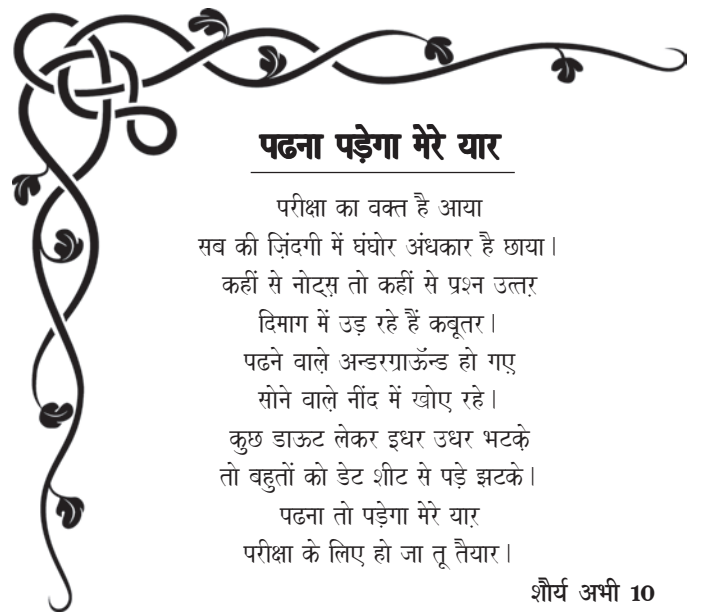 पढना पड़ेगा मेरे यार
परीक्षा का वक्त है आया
सब की ज़िंदगी में घंघोर अंधकार है छाया।
कहीं से नोट्स़ तो कहीं से प्रश्न उत्त्तऱ
दिमाग में उड़ रहे हैं कबूतर।
पढने वाले़ अन्डरग्राऊॅन्ड हो गए़
सोने वाले़ नींद में खोए रहे।
कुछ डाऊट लेकर इधर उधर भटके़
तो बहुतों को डेट शीट से पड़े झटके।
पढना तो पड़ेगा मेरे याऱ
परीक्षा के लिए हो जा तू तैयार।
शौर्य अभी 10